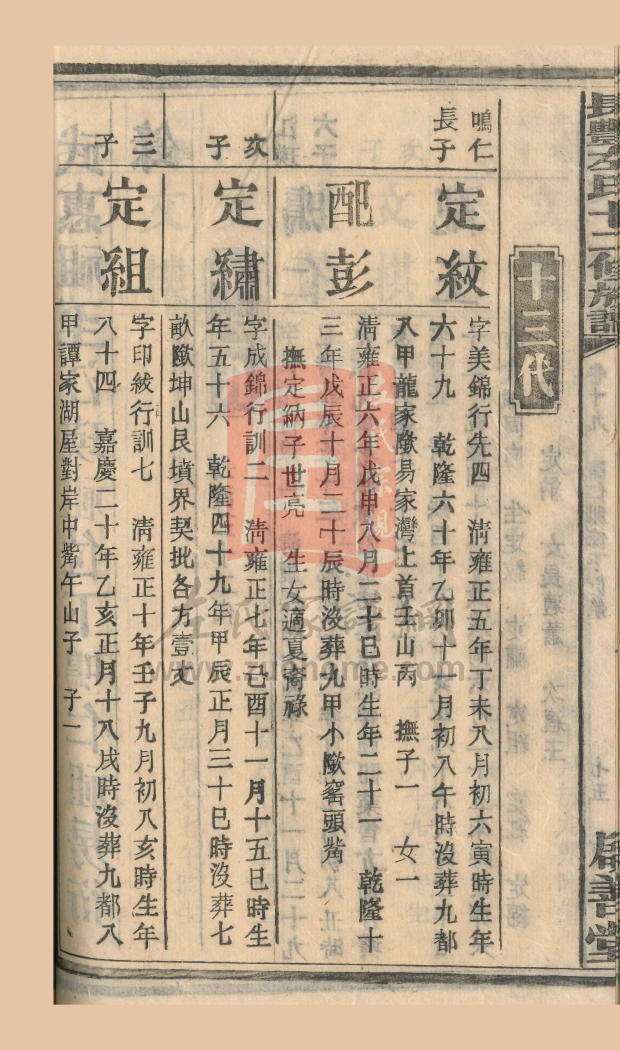 長豐左氏十二修族譜
啟善堂
十三代
鳴仁長子
定紋
字美錦行先四 清雍正五年丁未八月初六寅時生年
六十九 乾隆六十年乙卯十一月初八午時沒葬九都
八甲龍家陞易家灣上首壬山丙 撫子一 女一
配彭
清雍正六年戊申八月二十巳時生年二十一 乾隆十
三年戊辰十月二十辰時沒葬九甲小陞窰頭觜
撫定納子世亮 生女適夏喬祿
次子
定繡
字成錦行訓二 清雍正七年己酉十一月十五巳時生
年五十六 乾隆四十九年甲辰正月三十巳時沒葬七
畝陞坤山艮墳界契批各方壹丈
三子
定組
字印紱行訓七 清雍正十年壬子九月初八亥時生年
八十四 嘉慶二十年乙亥正月十八戌時沒葬九都八
甲譚家湖屋對岸中觜午山子 子一
www.zuohome.com